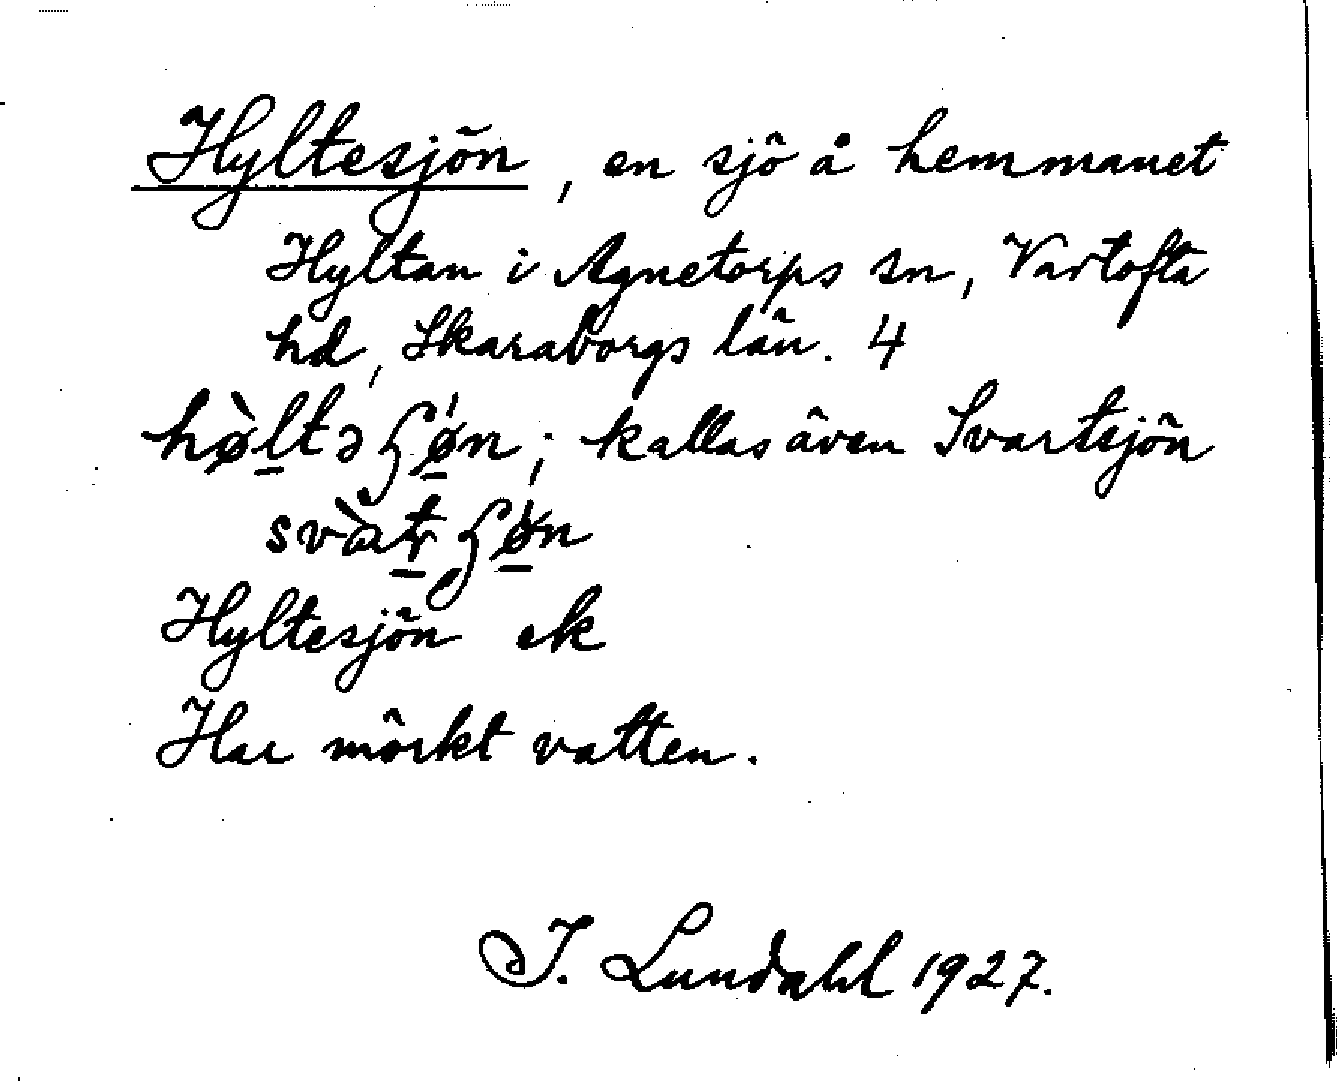 Hyltesjön, en sjö å hemmanet
Hyltan i Agnetorps sn, Vartofta
hd, Skaraborgs län. 4
hø̀ltəʃǿ̠n; kallas även Svartsjön
svàt̠ʃǿ̠n
Hyltesjön ek
Har mörkt vatten.
I. Lundahl 1927.